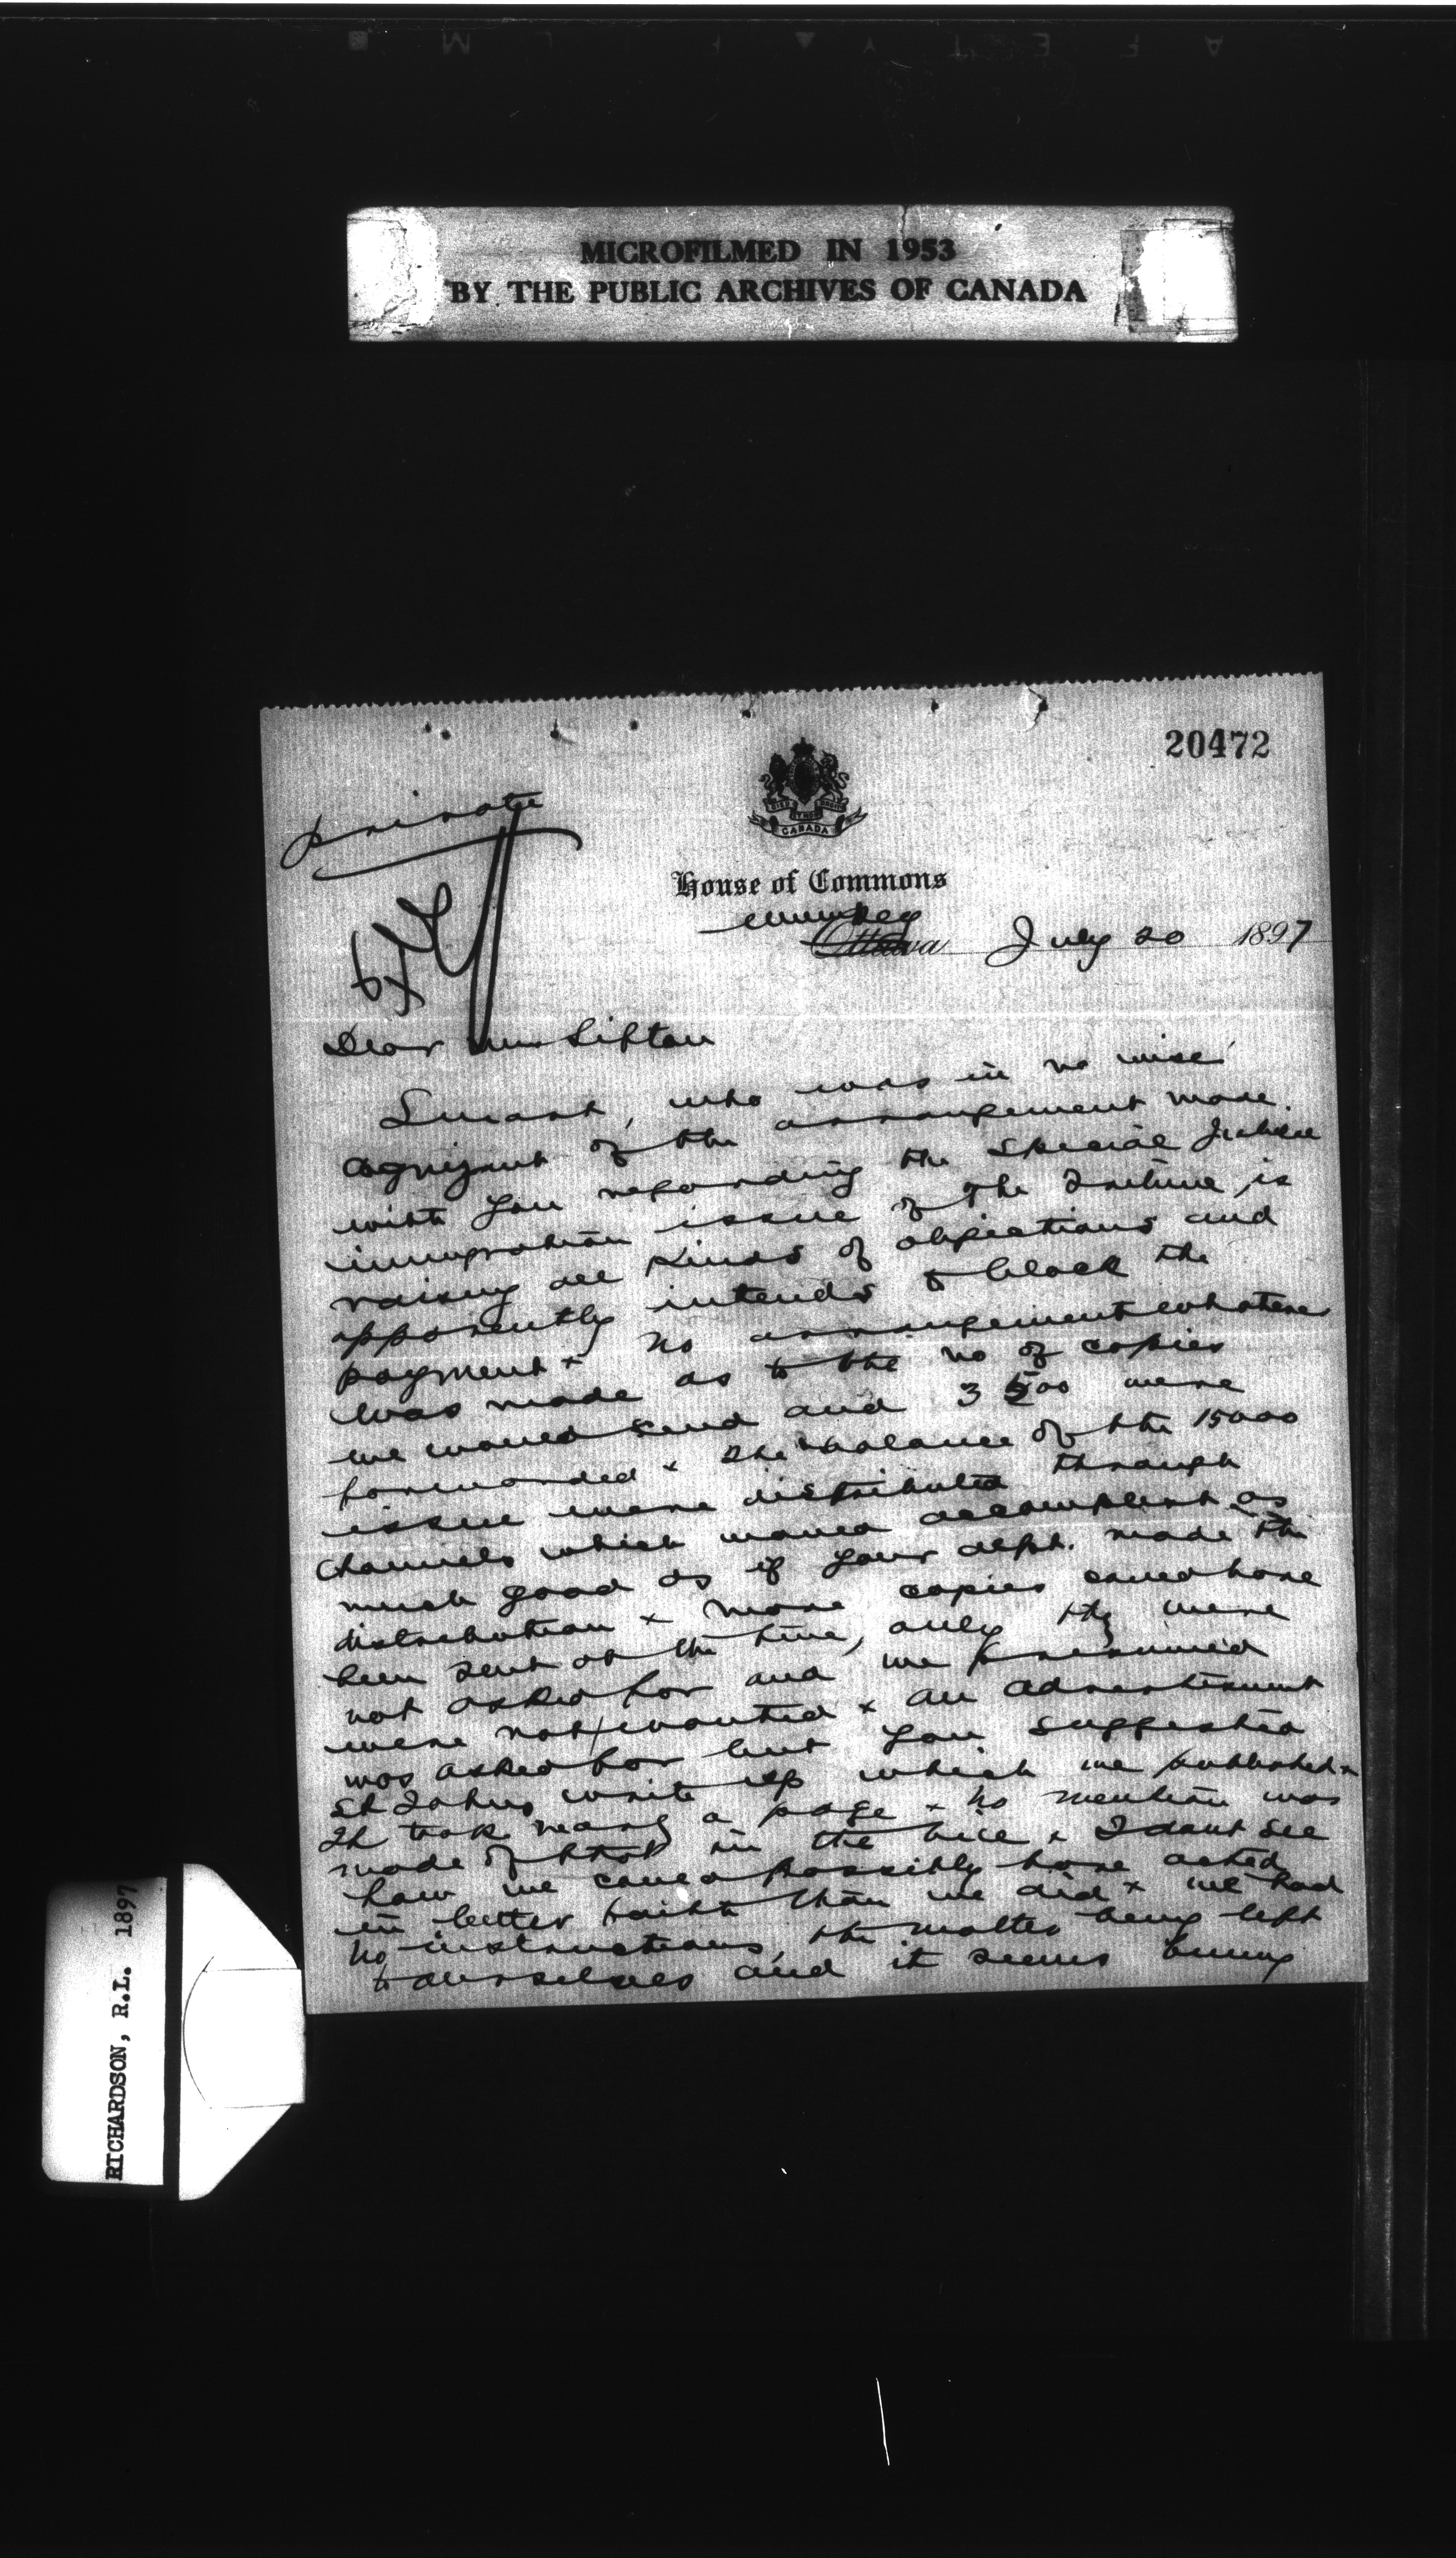 MICROFILMED IN 1953
BY THE PUBLIC ARCHIVES OF CANADA
20472
private
CANADA
House of Commons
Ottawa July 20 1897
Dear Mr Sifton
Smart, who was in no wise
cognizant of the arrangement made
with you regarding the special Jubilee
immigration issue of The Tribune, is
raising all kinds of objections and
apparently intends to block the
payment x No arrangement whatever
was made as to the no of copies
we would send and 3500 were
forwarded x The balance of the 15000
issue were distributed through
channels which would accomplish as
much good as if your dept. made the
distribution x More copies could have
been sent at the time, only they were
not asked for and we presumed
were not wanted x An advertisement
was asked for but you suggested
St Johns write up which we published x
It took nearly a page x No mention was
made of that in the x I dont see
how we could possibly have acted
in better faith than we did x We had
no instructions, the matter being left
to ourselves and it seems funny
RICHARDSON, R.L. 1897